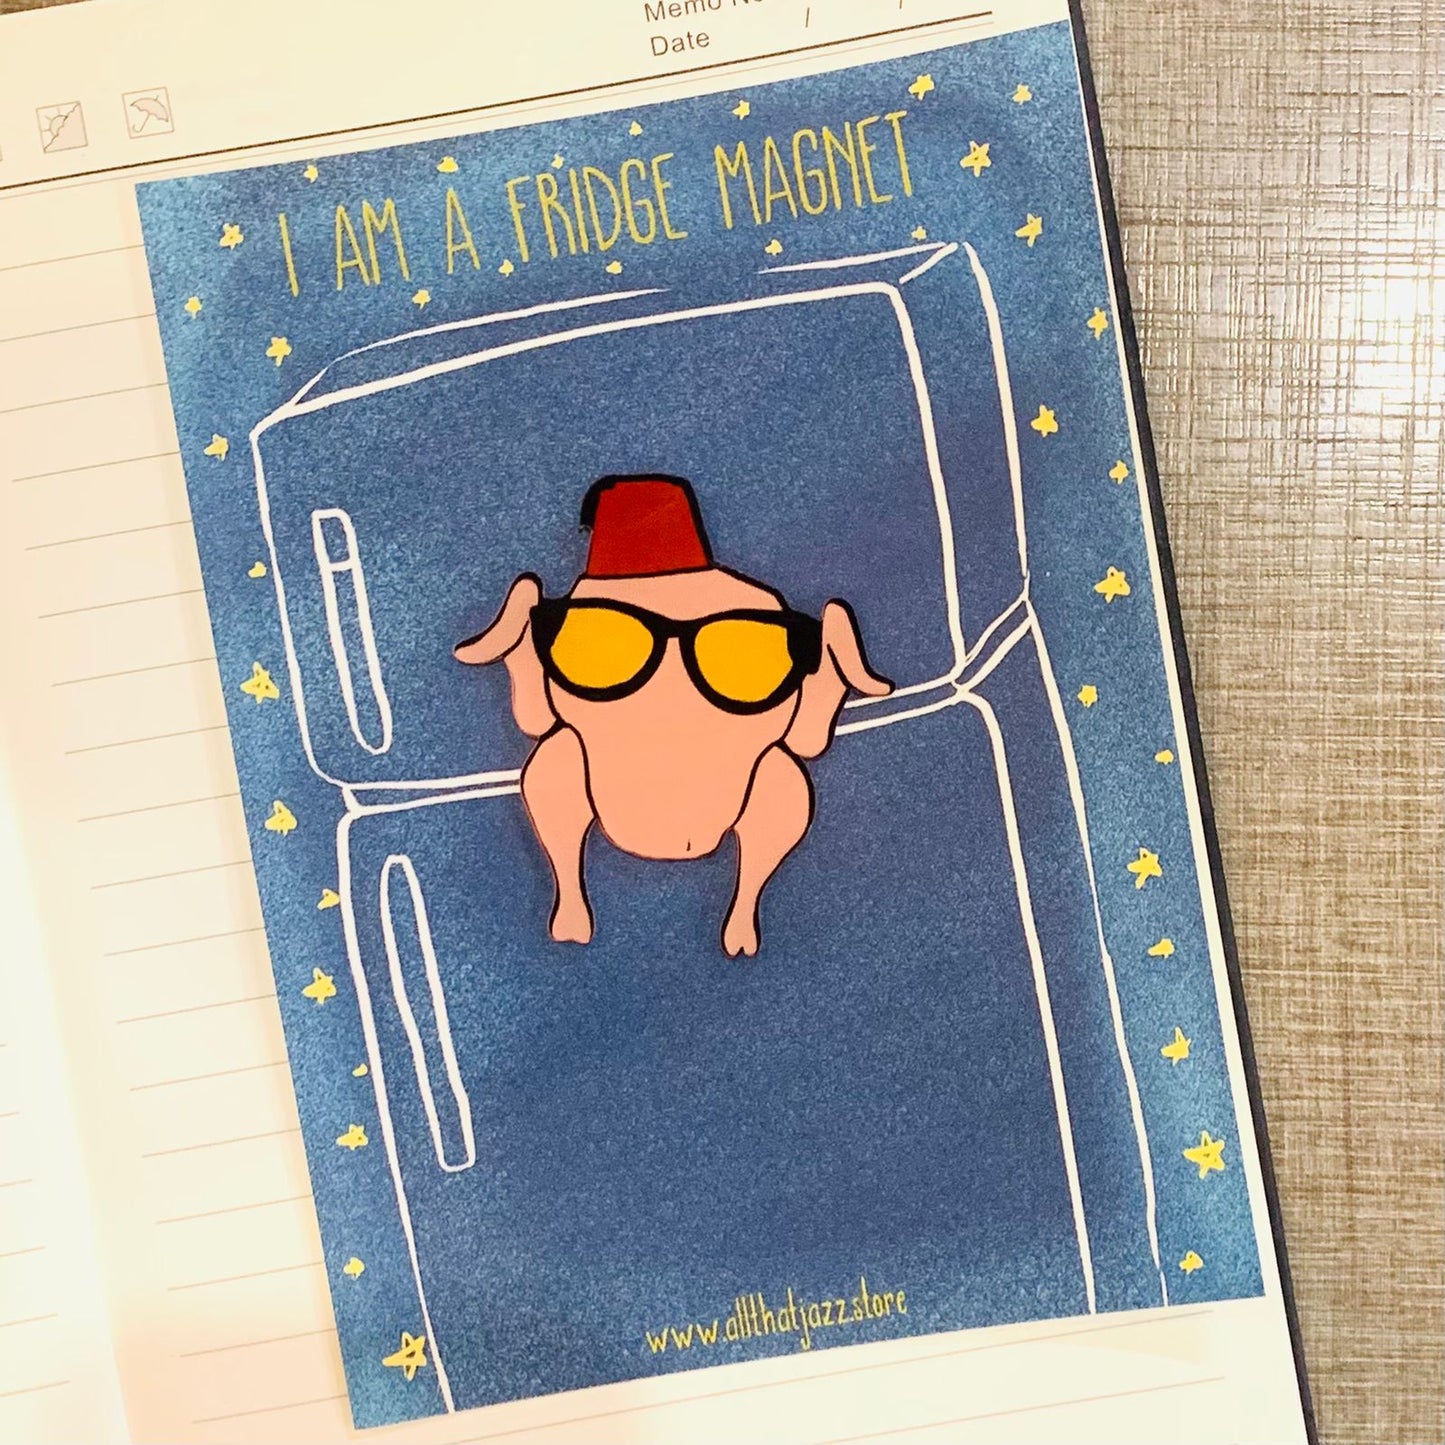 Memo No
Date / /
I AM A FRIDGE MAGNET
www.allthatjazz.store